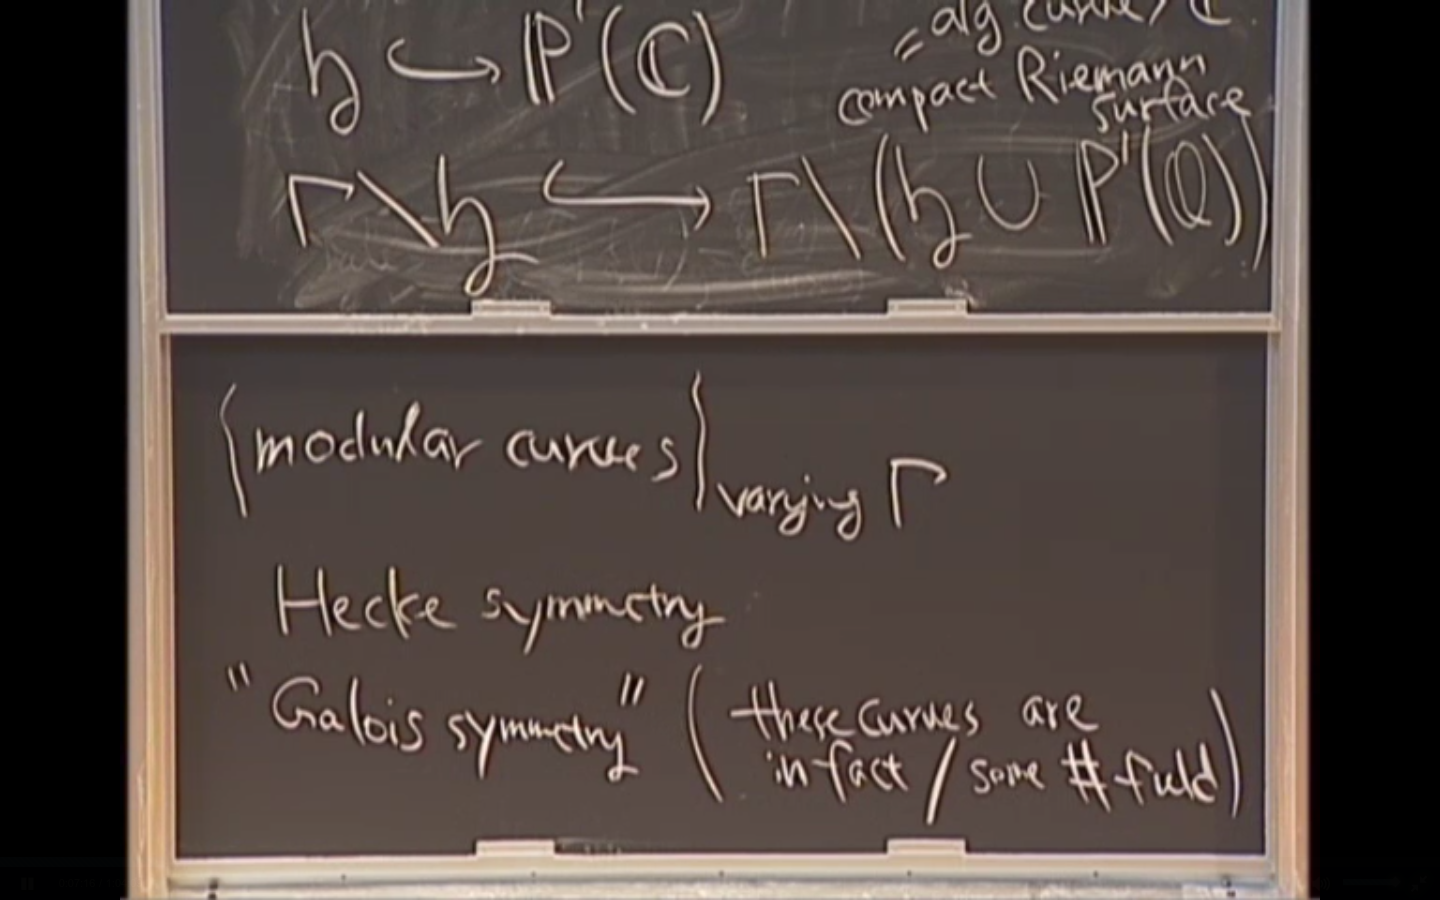 = alg curve / ℂ
𝔥 ↪ ℙ¹(ℂ)
compact Riemann
surface
Γ\𝔥 ↪ Γ\(𝔥 ∪ ℙ¹(ℚ))
{modular curves} varying Γ
Hecke symmetry
"Galois symmetry" ( these curves are
in fact / some # field )